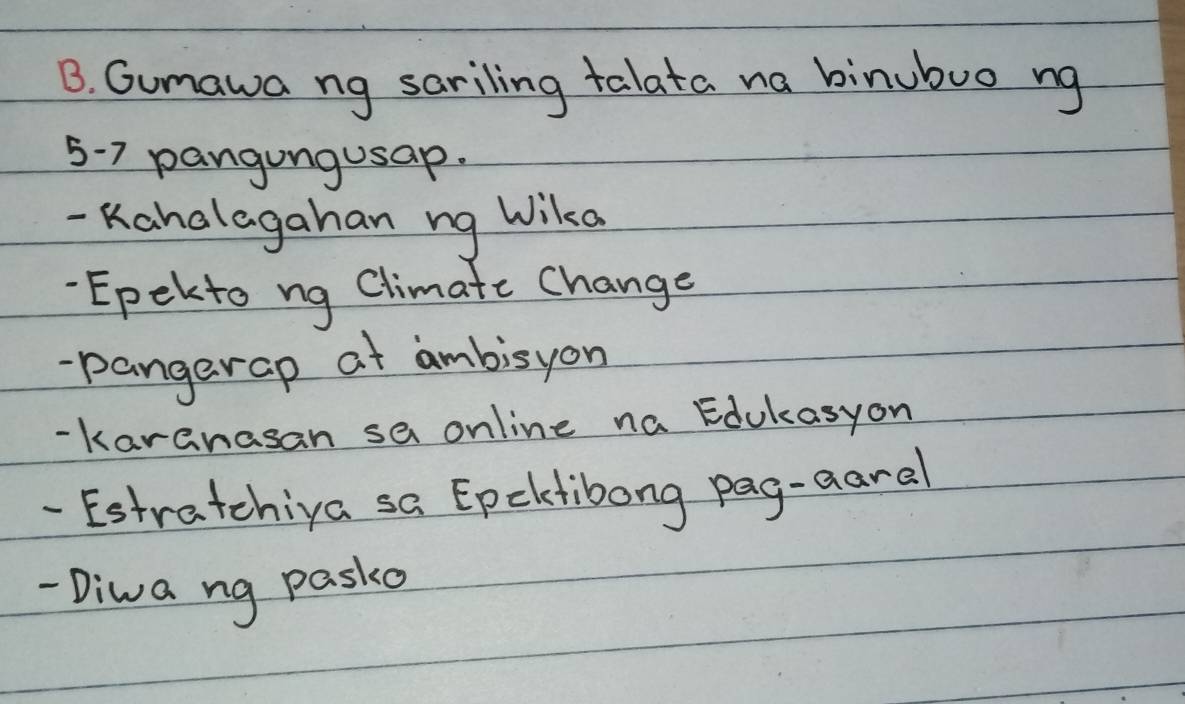 B. Gumawa ng sariling talata na binubuo ng
5-7 pangungusap.
- Kahalagahan ng Wika
- Epekto ng Climate Change
- pangarap at ambisyon
- karanasan sa online na Edukasyon
- Estratehiya sa Epektibong pag-aaral
- Diwa ng pasko